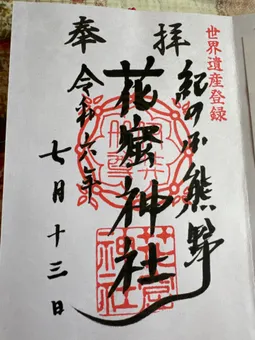 世界遺産登録
奉拝
紀の国熊野
花窟神社
令和六年
七月十三日
花窟神社